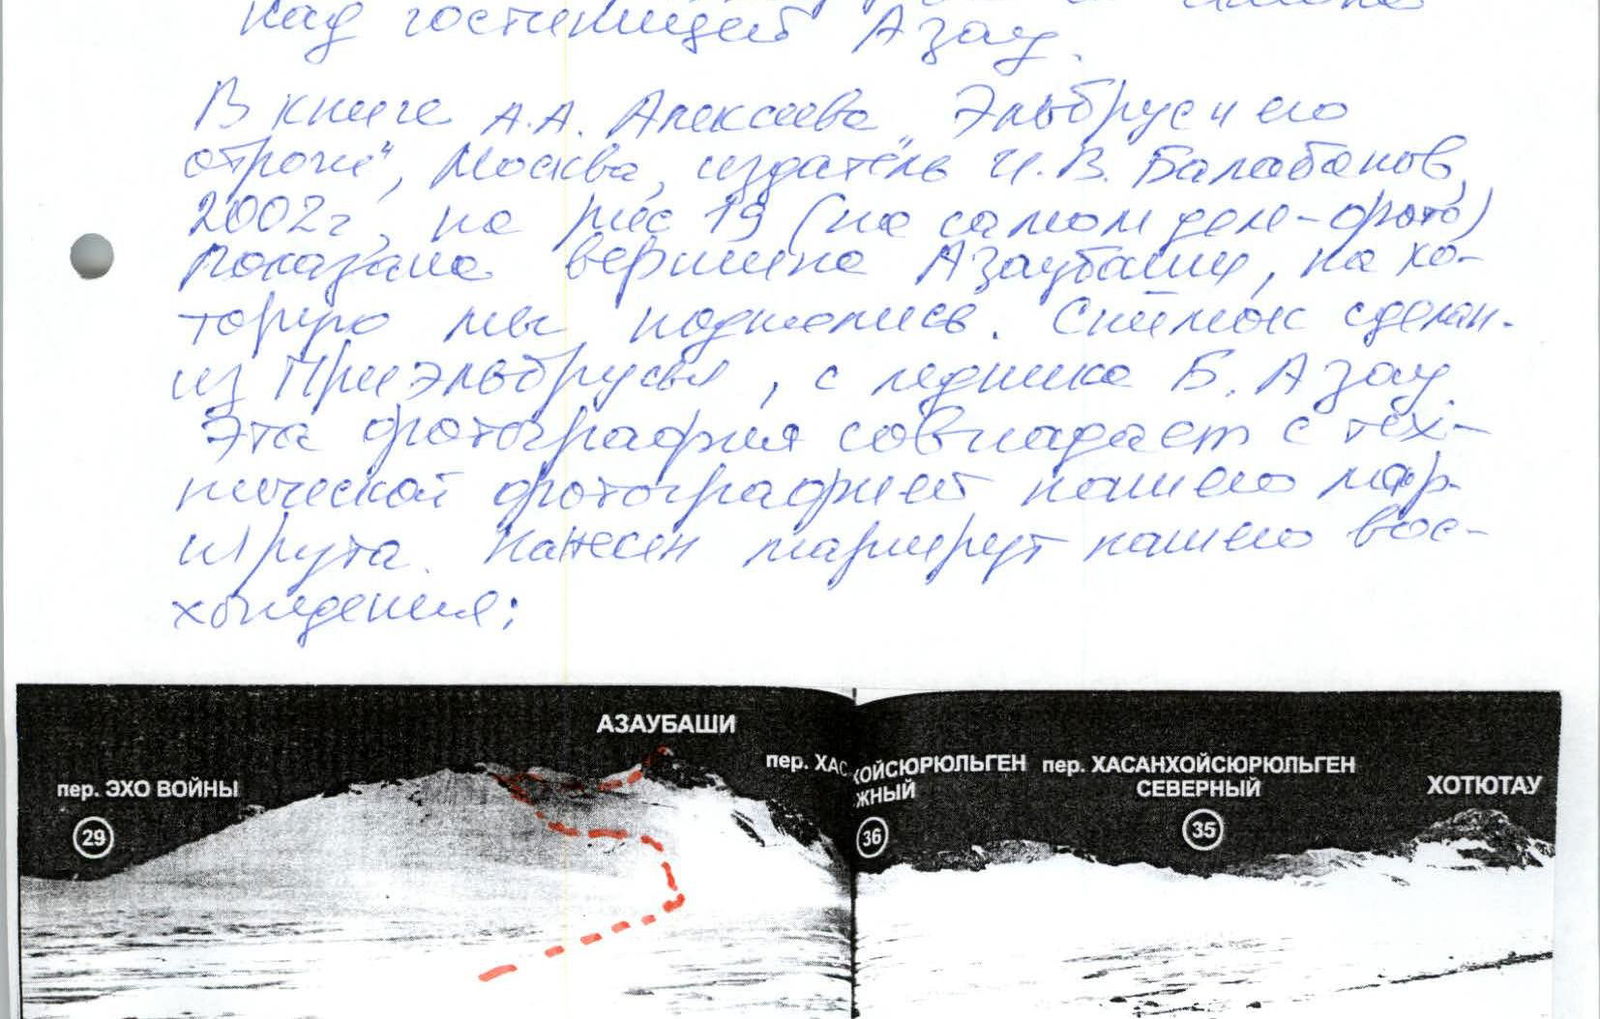 над гостиницей Азау.
В книге А.А. Алексеева „Эльбрус и его
отроги", Москва, издатель И.В. Балабанов,
2002г, на рис 19 (на самом деле-фото)
показана вершина Азаубаши, на ко-
торую мы поднялись. Снимок сделан
из Приэльбрусья, с ледника Б. Азау.
Эта фотография совпадает с тех-
нической фотографией нашего мар-
шрута. Нанесен маршрут нашего вос-
хождения:
АЗАУБАШИ
пер. ЭХО ВОЙНЫ
29
пер. ХАС ХОЙСЮРЮЛЬГЕН
ЖНЫЙ
36
пер. ХАСАНХОЙСЮРЮЛЬГЕН
СЕВЕРНЫЙ
35
ХОТЮТАУ